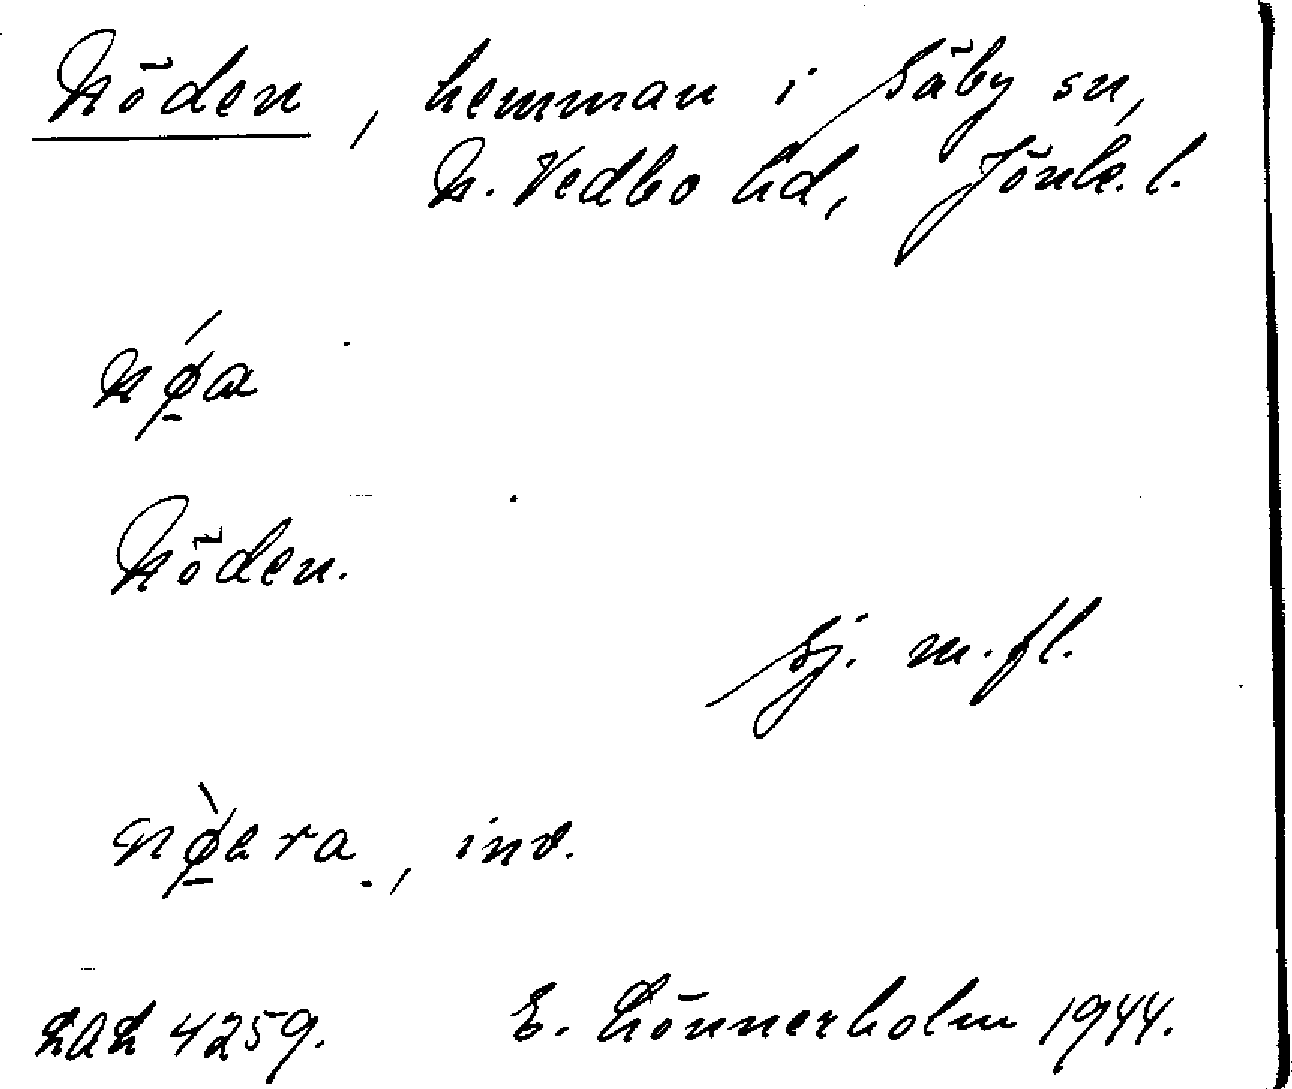 Nöden, hemman i Säby sn,
N. Vedbo hd, Jönk. l.
nǿ̱a
Nöden.
Sj. m. fl.
nø̱̀ara., inv.
LAL 4259. E. Lönnerholm 1944.